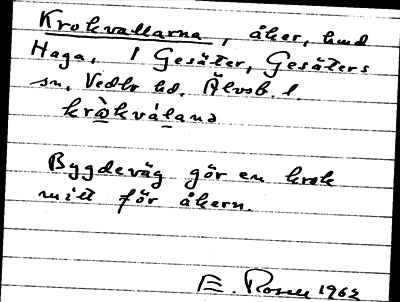 Krokvallarna, åker, hmd
Haga, 1 Gesäter, Gesäters
sn, Vedbo hd. Älvsb. l.
kròkválana
Bygdeväg gör en krok
mitt för åkern.
E. Rosell 1962